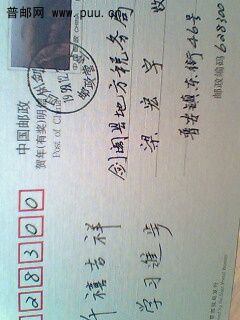 普邮网 www.puu.cn
中国邮政
贺年(有奖)明信片
Post of China
28300
普安鎮东街46号
剑阁县地方税务局
梁宏宇 收
千禧吉祥
学习進步
邮政编码 628300